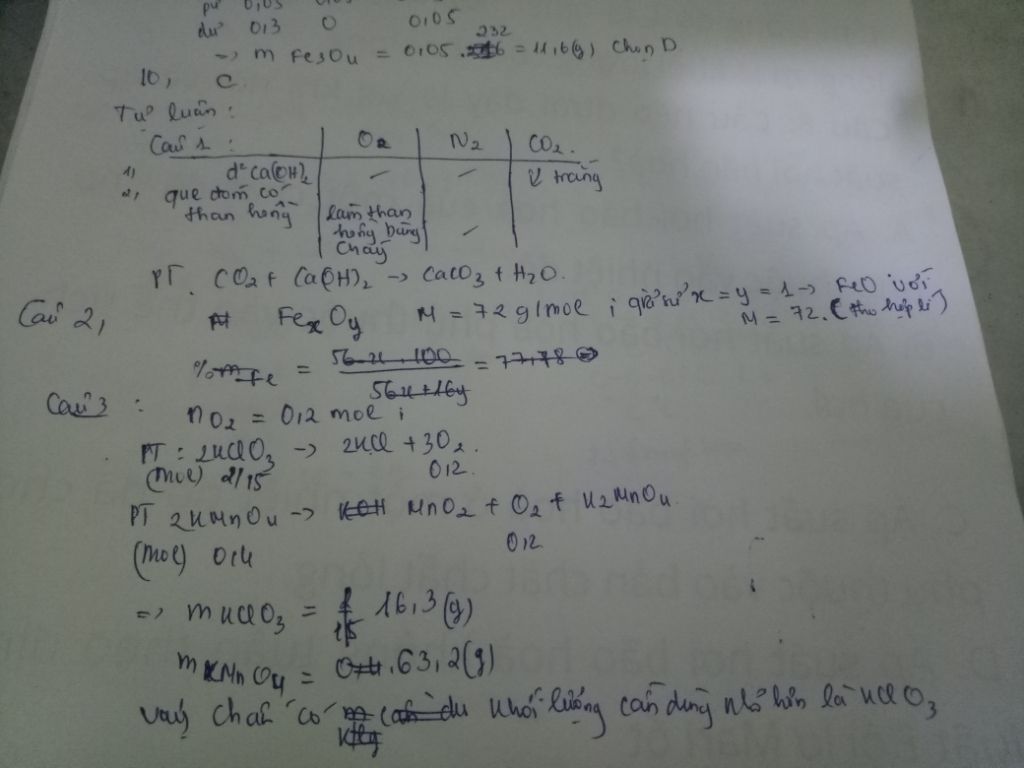 pư 0,05
dư 0,3 0 0,05
-> m Fe3O4 = 0,05 . 232 = 11,6(g) chọn D
10, C
Tự luận :
Câu 1 : O2 N2 CO2.
1) d² Ca(OH)2 – – ↓ trắng
2, que đóm có than hồng làm than hồng bùng cháy –
PT. CO2 + Ca(OH)2 -> CaCO3 + H2O.
Câu 2, FexOy M = 72 g/mol ; giả sử x = y = 1 -> FeO với
M = 72. (thỏa hợp lí)
%mFe = 56x.100 / 56x+16y = 77,78
Câu 3 : nO2 = 0,2 mol ;
PT : 2KClO3 -> 2KCl + 3O2.
(mol) 2/15 0,2.
PT 2KMnO4 -> KOH MnO2 + O2 + K2MnO4.
(mol) 0,4 0,2
=> mKClO3 = 16,3(g)
mKMnO4 = 63,2(g)
vậy chất có khối lượng cần dùng nhỏ hơn là KClO3